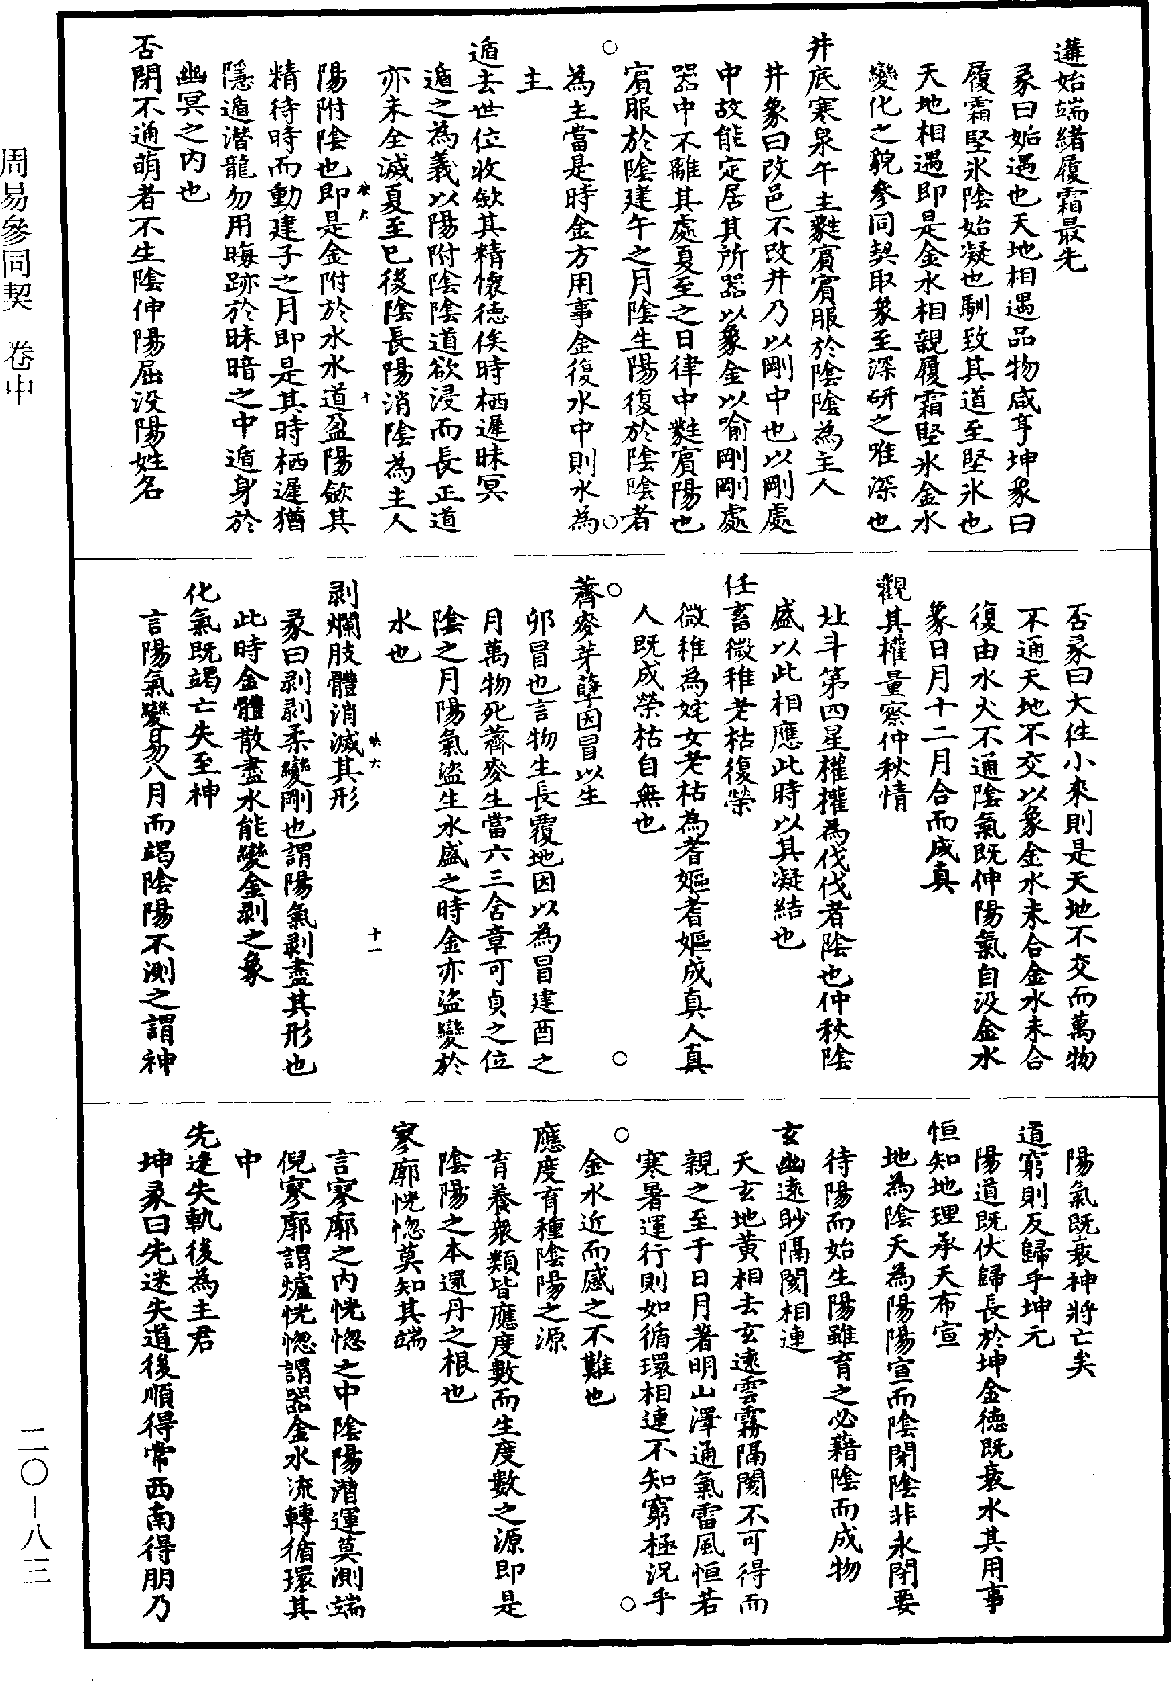 遘始端緒履霜最先
彖曰姤遇也天地相遇品物咸亨坤象曰
履霜堅氷陰始凝也馴致其道至堅氷也
天地相遇即是金水相親履霜堅氷金水
變化之貌參同契取象至深研之唯深也
井底寒泉午主蕤賔賔服於陰陰為主人
井象曰改邑不改井乃以剛中也以剛處
中故能定居其所器以象金以喻剛剛處
器中不離其處夏至之日律中蕤賔陽也
賔服於陰建午之月陰生陽復於陰陰者
為主當是時金方用事金復水中則水為
主
遁去世位收斂其精懷德俟時栖遲昧冥
遁之為義以陽附陰陰道欲浸而長正道
亦未全滅夏至已後陰長陽消陰為主人
陽附陰也即是金附於水水道盈陽斂其
精待時而動建子之月即是其時栖遲猶
隱遁潛龍勿用晦跡於昧暗之中遁身於
幽冥之内也
否閉不通萌者不生陰伸陽屈没陽姓名
否彖曰大往小來則是天地不交而萬物
不通天地不交以象金水未合金水未合
復由水火不通陰氣既伸陽氣自没金水
象日月十二月合而成真
觀其權量察仲秋情
北斗第四星權權為伐伐者陰也仲秋陰
盛以此相應此時以其凝結也
任畜微稚老枯復榮
微稚為姹女老枯為耆嫗耆嫗成真人真
人既成榮枯自無也
薺麥芽蘖因冒以生
卯冒也言物生長覆地因以為冒建酉之
月萬物死薺麥生當六三含章可貞之位
陰之月陽氣盜生水盛之時金亦盜變於
水也
剥爛肢體消滅其形
彖曰剥剥柔變剛也謂陽氣剥盡其形也
此時金體散盡水能變金剥之象
化氣既竭亡失至神
言陽氣變易八月而竭陰陽不測之謂神
陽氣既衰神將亡矣
道窮則反歸乎坤元
陽道既伏歸長於坤金德既衰水其用事
恒知地理承天布宣
地為陰天為陽陽宣而陰閉陰非永閉要
待陽而始生陽雖育之必藉陰而成物
玄幽遠眇隔閡相連
天玄地黄相去玄遠雲霧隔閡不可得而
親之至于日月著明山澤通氣雷風恒若
寒暑運行則如循環相連不知窮極況乎
金水近而感之不難也
應度育種陰陽之源
育養衆類皆應度數而生度數之源即是
陰陽之本還丹之根也
寥廓恍惚莫知其端
言寥廓之内恍惚之中陰陽潛運莫測端
倪寥廓謂爐恍惚謂器金水流轉循環其
中
先迷失軌後為主君
坤彖曰先迷失道後順得常西南得朋乃
周易參同契 卷中
二〇－八三